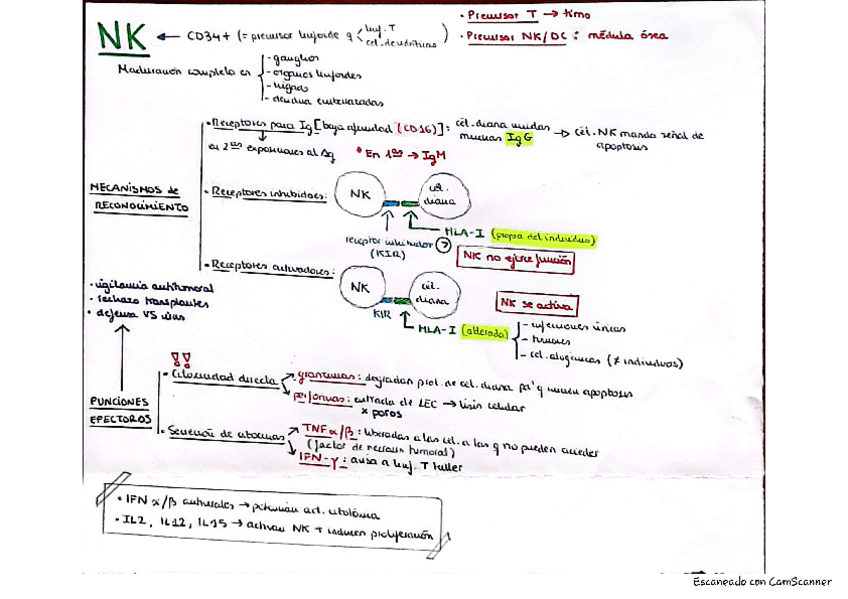 NK ← CD34+ (= precursor linfoide q < linf. T
cél. dendríticas )
• Precursor T → timo
• Precursor NK/DC: médula ósea
Maduración completa en
- ganglios
- órganos linfoides
- hígado
- decidua embarazadas
MECANISMOS de
RECONOCIMIENTO
• Receptores para Ig [baja afinidad (CD16)]: cél. diana unidas
muchas IgG → cél. NK manda señal de
apoptosis
en 2as exposiciones al Ag * En 1as → IgM
• Receptores inhibidores:
NK
cél.
diana
HLA-I (propia del individuo)
receptor inhibidor
(KIR)
NK no ejerce función
• Receptores activadores:
NK
cél.
diana
KIR
HLA-I (alterada)
NK se activa
- infecciones víricas
- tumores
- cél. alogénicas (≠ individuos)
• vigilancia antitumoral
• rechazo transplantes
• defensa VS virus
FUNCIONES
EFECTORAS
!!
• Citotoxicidad directa
granzimas: degradan prot. de cél. diana pa' q inicien apoptosis
perforinas: entrada de LEC → lisis celular
x poros
• Secreción de citocinas
TNF α/β: liberadas a las cél. a las q no pueden acceder
(factor de necrosis tumoral)
IFN-γ: avisa a linf. T killer
• IFN α/β antivirales → potencian act. citotóxica
• IL2, IL12, IL15 → activan NK + inducen proliferación
Escaneado con CamScanner